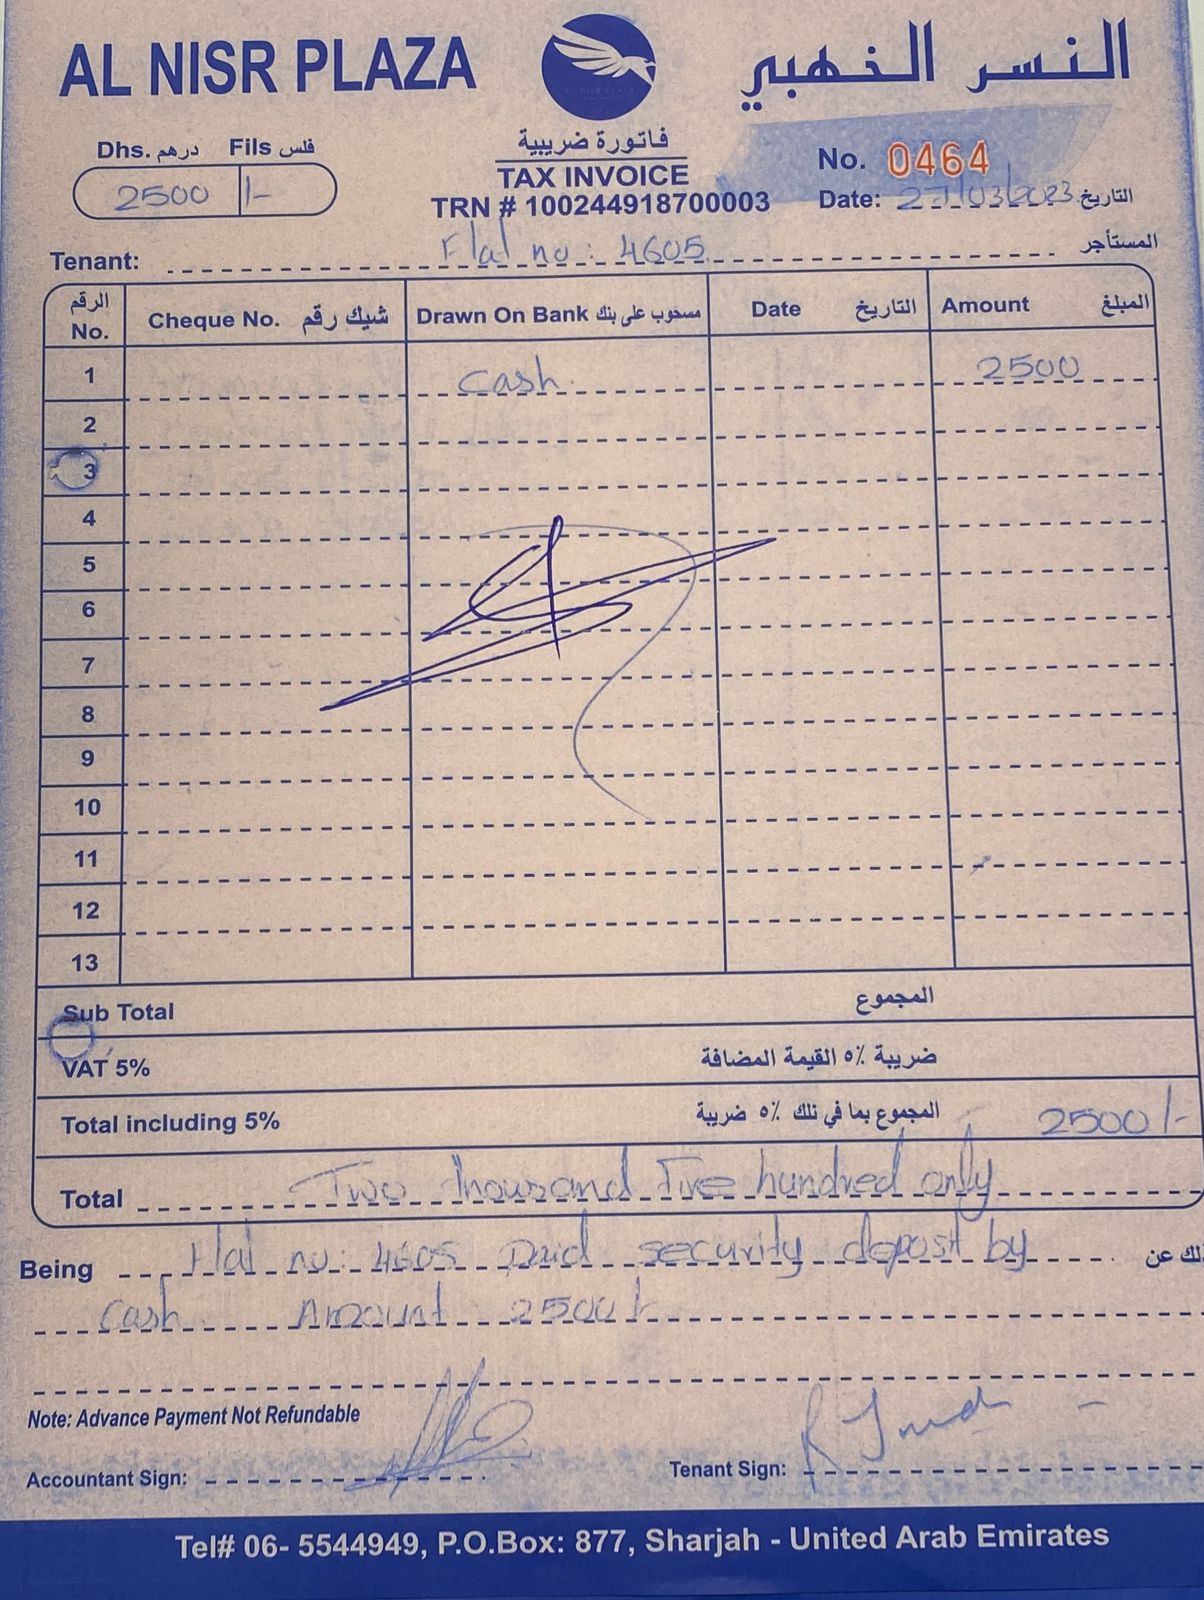 AL NISR PLAZA
النسر الخهبي
AL NISR PLAZA
Dhs. درهم Fils فلس
2500 /-
فاتورة ضريبية
TAX INVOICE
TRN # 100244918700003
No. 0464
Date: 27/03/2023 التاريخ
Tenant: Flat no: 4605 المستأجر
الرقم No. Cheque No. شيك رقم Drawn On Bank مسحوب على بنك Date التاريخ Amount المبلغ
1 Cash 2500
2
3
4
5
6
7
8
9
10
11
12
13
Sub Total المجموع
VAT 5% ضريبة ٥٪ القيمة المضافة
Total including 5% المجموع بما في ذلك ٥٪ ضريبة 2500/-
Total Two thousand Five hundred only
Being Flat no: 4605 Paid security depost by ذلك عن
Cash Amount 2500/-
Note: Advance Payment Not Refundable
Accountant Sign: Tenant Sign:
Tel# 06- 5544949, P.O.Box: 877, Sharjah - United Arab Emirates